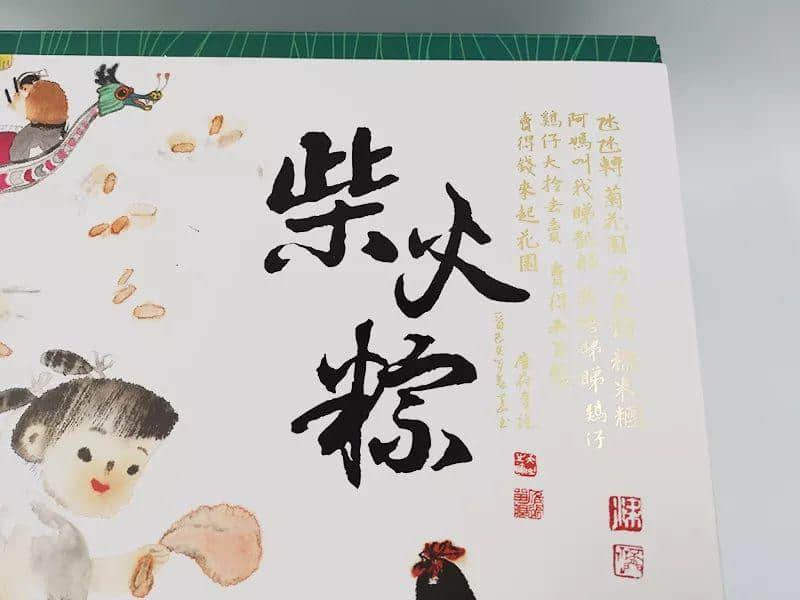 柴火粽
氹氹轉 菊花園 炒米餅 糯米糰
阿媽叫我睇龍船 我唔睇睇鷄仔
鷄仔大拎去賣 賣得
賣得錢來起花園